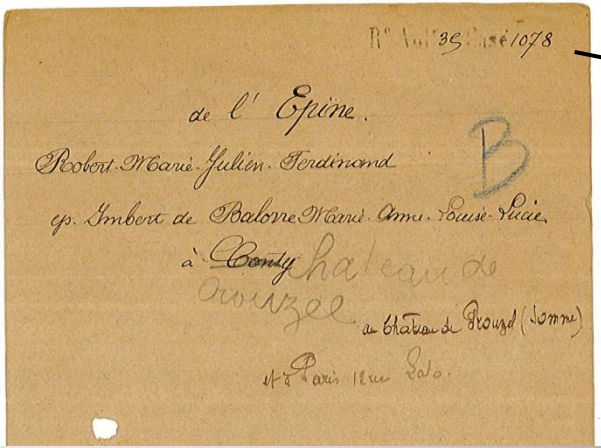 Rº Vol: 35 Case 1078
de l' Epine.
Robert-Marie-Julien-Ferdinand
ep. Imbert de Balorre Marie-Anne-Louise-Lucie
B
à Conty Chateau de
Prouzel
au Château de Prouzel (Somme)
et à Paris 12 rue Lalo.